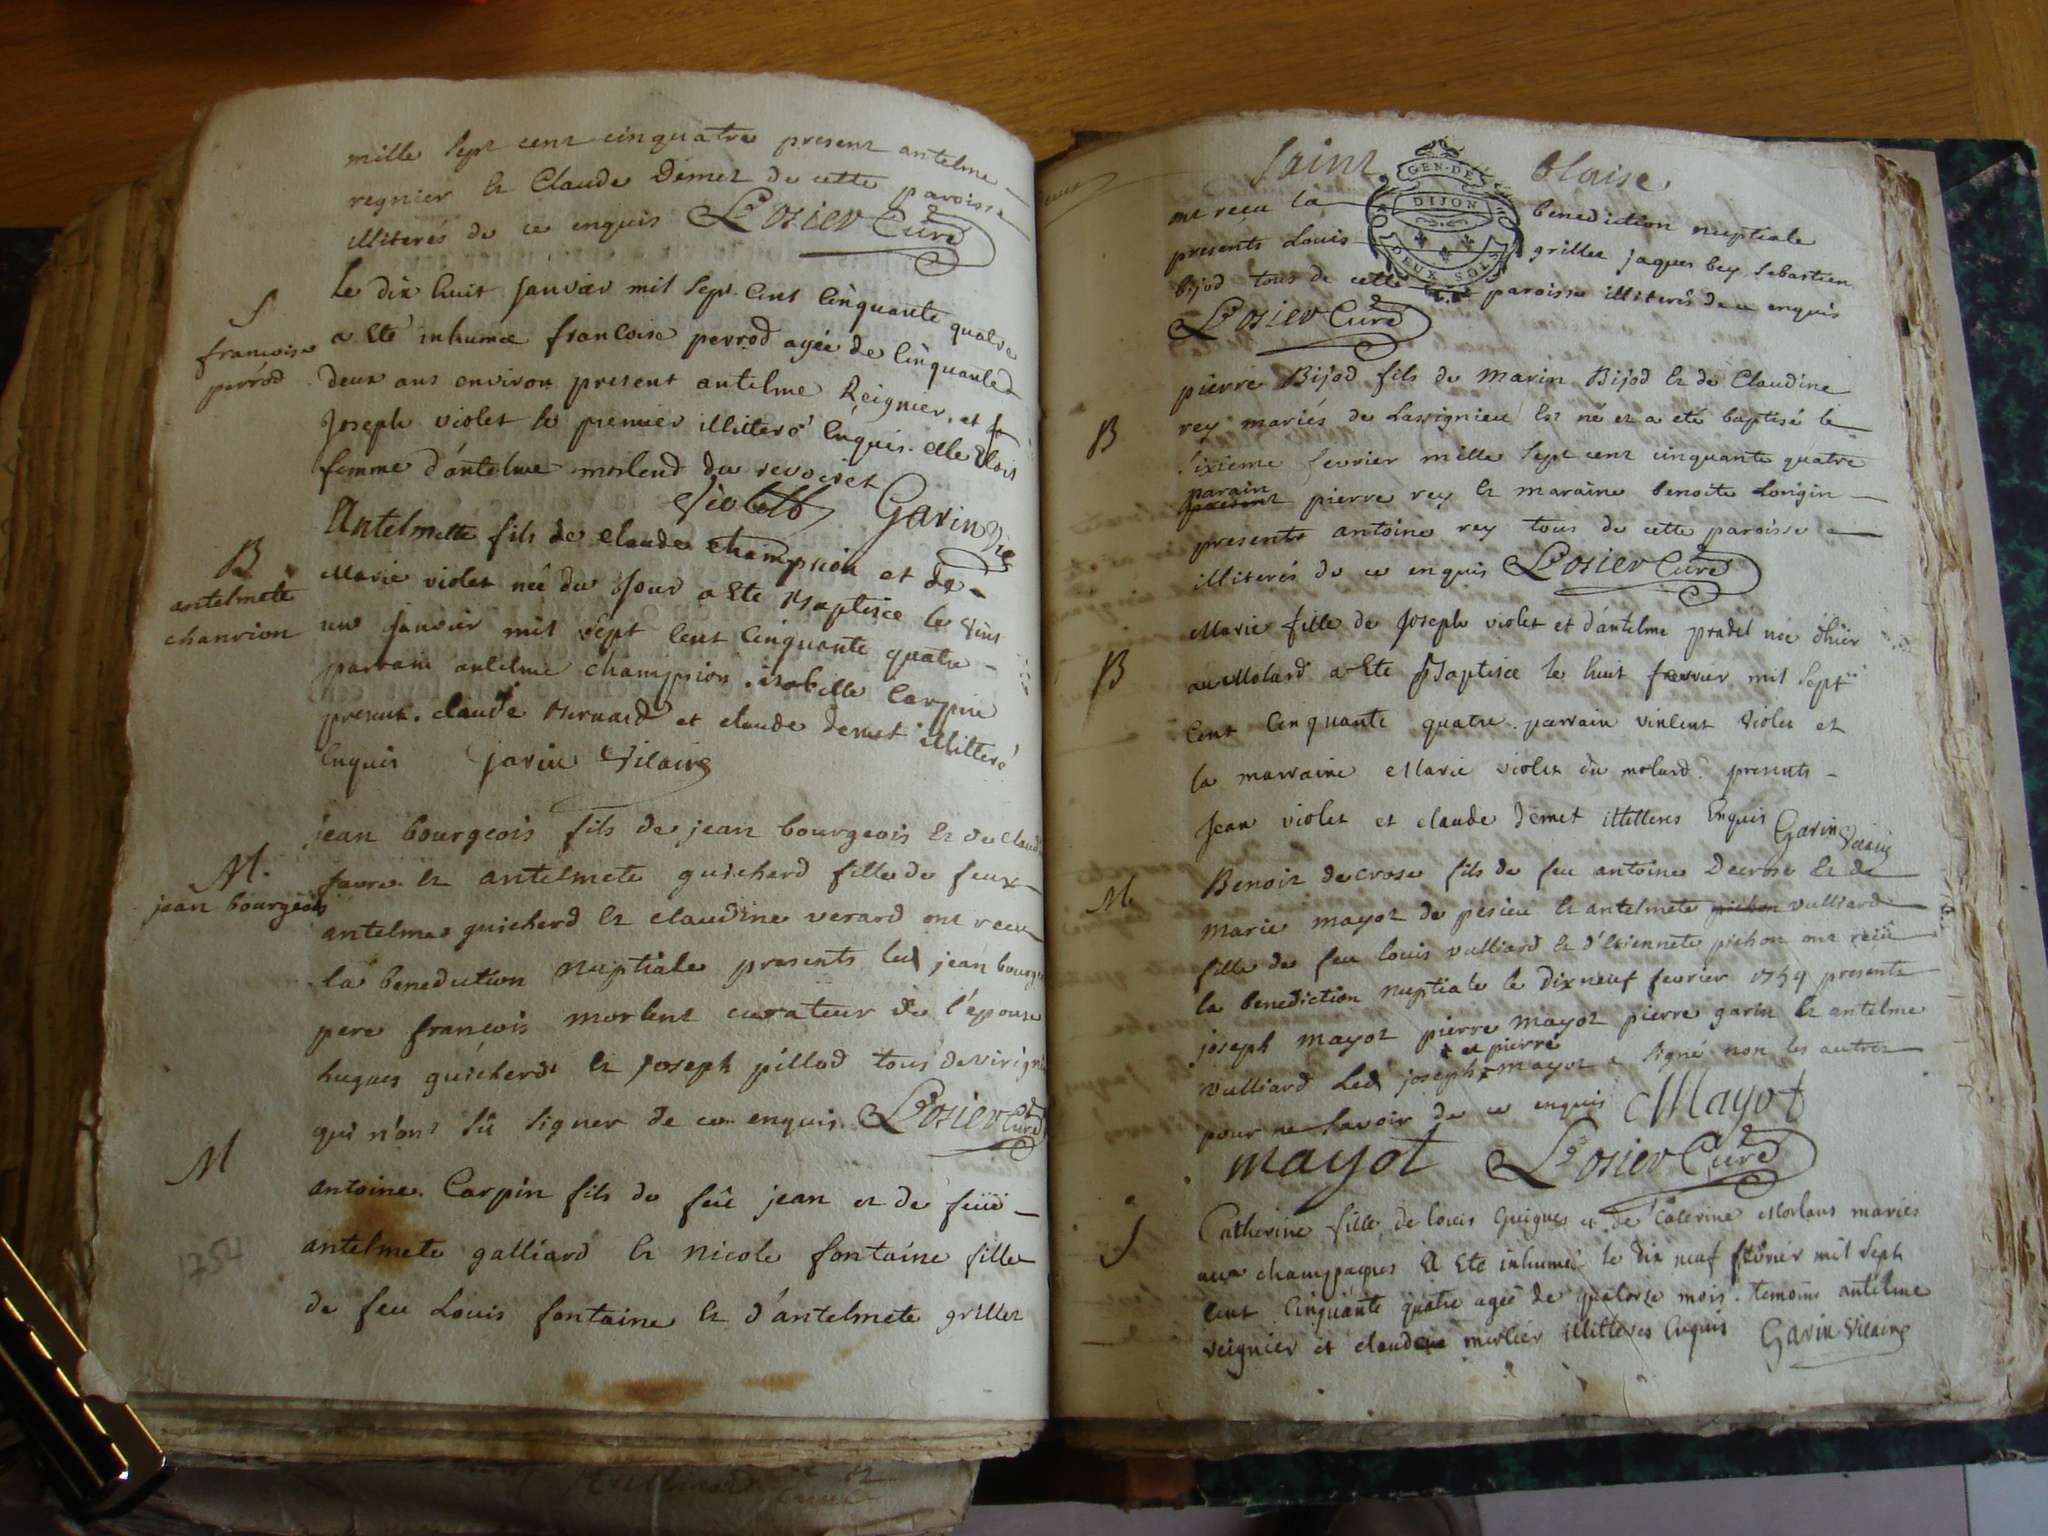 mille sept cent cinquatre present antelme
regnier et Claude Demet de cette paroisse
illiterés de ce enquis Losier Curé
S
francoise
perrod
le dix huit janvier mil sept cent cinquante quatre
a ete inhumee francoise perrod agée de cinquante
deux ans environ present antelme Reignier, et
joseph violet le premier illitteré enquis. elle etois
femme d'antelme morlend du revoiret
Violett Garin Vic
B
antelmete
chanrion
Antelmette fils de claude champrion et de
Marie violet née du jour a ete Baptisée le vint
un janvier mil sept cent cinquante quatre
parrain antelme champrion. isabelle Carpin
present. claude Bernard et claude demet illitteré
enquis garin Vicaire
M.
jean bourgeois
jean bourgeois fils de jean bourgeois et de claudi
favre. et antelmete guicherd fille de feux
antelme guicherd et claudine verard ont recu
la benediction nuptiale presents led jean bourge
pere francois morlent curateur de l'epouse
hugues guicherd et joseph pillod tous de virigni
qui n'ont sû signer de ce enquis. Losier Curé
M
antoine Carpin fils de feû jean et de feüe
antelmete galliard et nicole fontaine fille
de feu Louis fontaine et d'antelmete grillet
1754
Saint Blaise
GEN. DE
DIJON
DEUX SOLS
ont recu la benediction nuptiale
presents Louis grillet jaques bey sebastien
bijod tous de cette paroisse illiterés de ce enquis
Losier Curé
B
pierre Bijod fils de marin Bijod et de Claudine
rey mariés de Lassignieu est né et a eté baptisé le
sixieme fevrier mille sept cent cinquante quatre
parain
present pierre rey et maraine benoite Longin
presents antoine rey tous de cette paroisse
illiterés de ce enquis Losier Curé
B
Marie fille de joseph violet et d'antelme pradel née d'hier
au Molard a ete Baptisée le huit fevrier mil sept
cent cinquante quatre. parrain vincent violet et
la marraine Marie violet du molard. presents
jean violet et claude demet illitteres enquis Garin Vicaire
M.
Benoit decrose fils de feu antoine Decrose et de
marie mayot de pesieu et antelmete pichon vulliard
fille de feu louis vulliard et d'etiennete pichon ont reçû
la benediction nuptiale le dix neuf fevrier 1754 presents
joseph mayot pierre mayot pierre garin et antelme
et pierre
vulliard led joseph mayot a signé non les autres
pour ne savoir de ce enquis Mayot
mayot Losier Curé
S
Catherine fille de louis Guigues et de Caterine Morlans mariés
aux champagnes a ete inhumée le dix neuf fevrier mil sept
cent cinquante quatre agée de quatorze mois. temoins antelme
reignier et claudene mirlier illitteres enquis Garin Vicaire